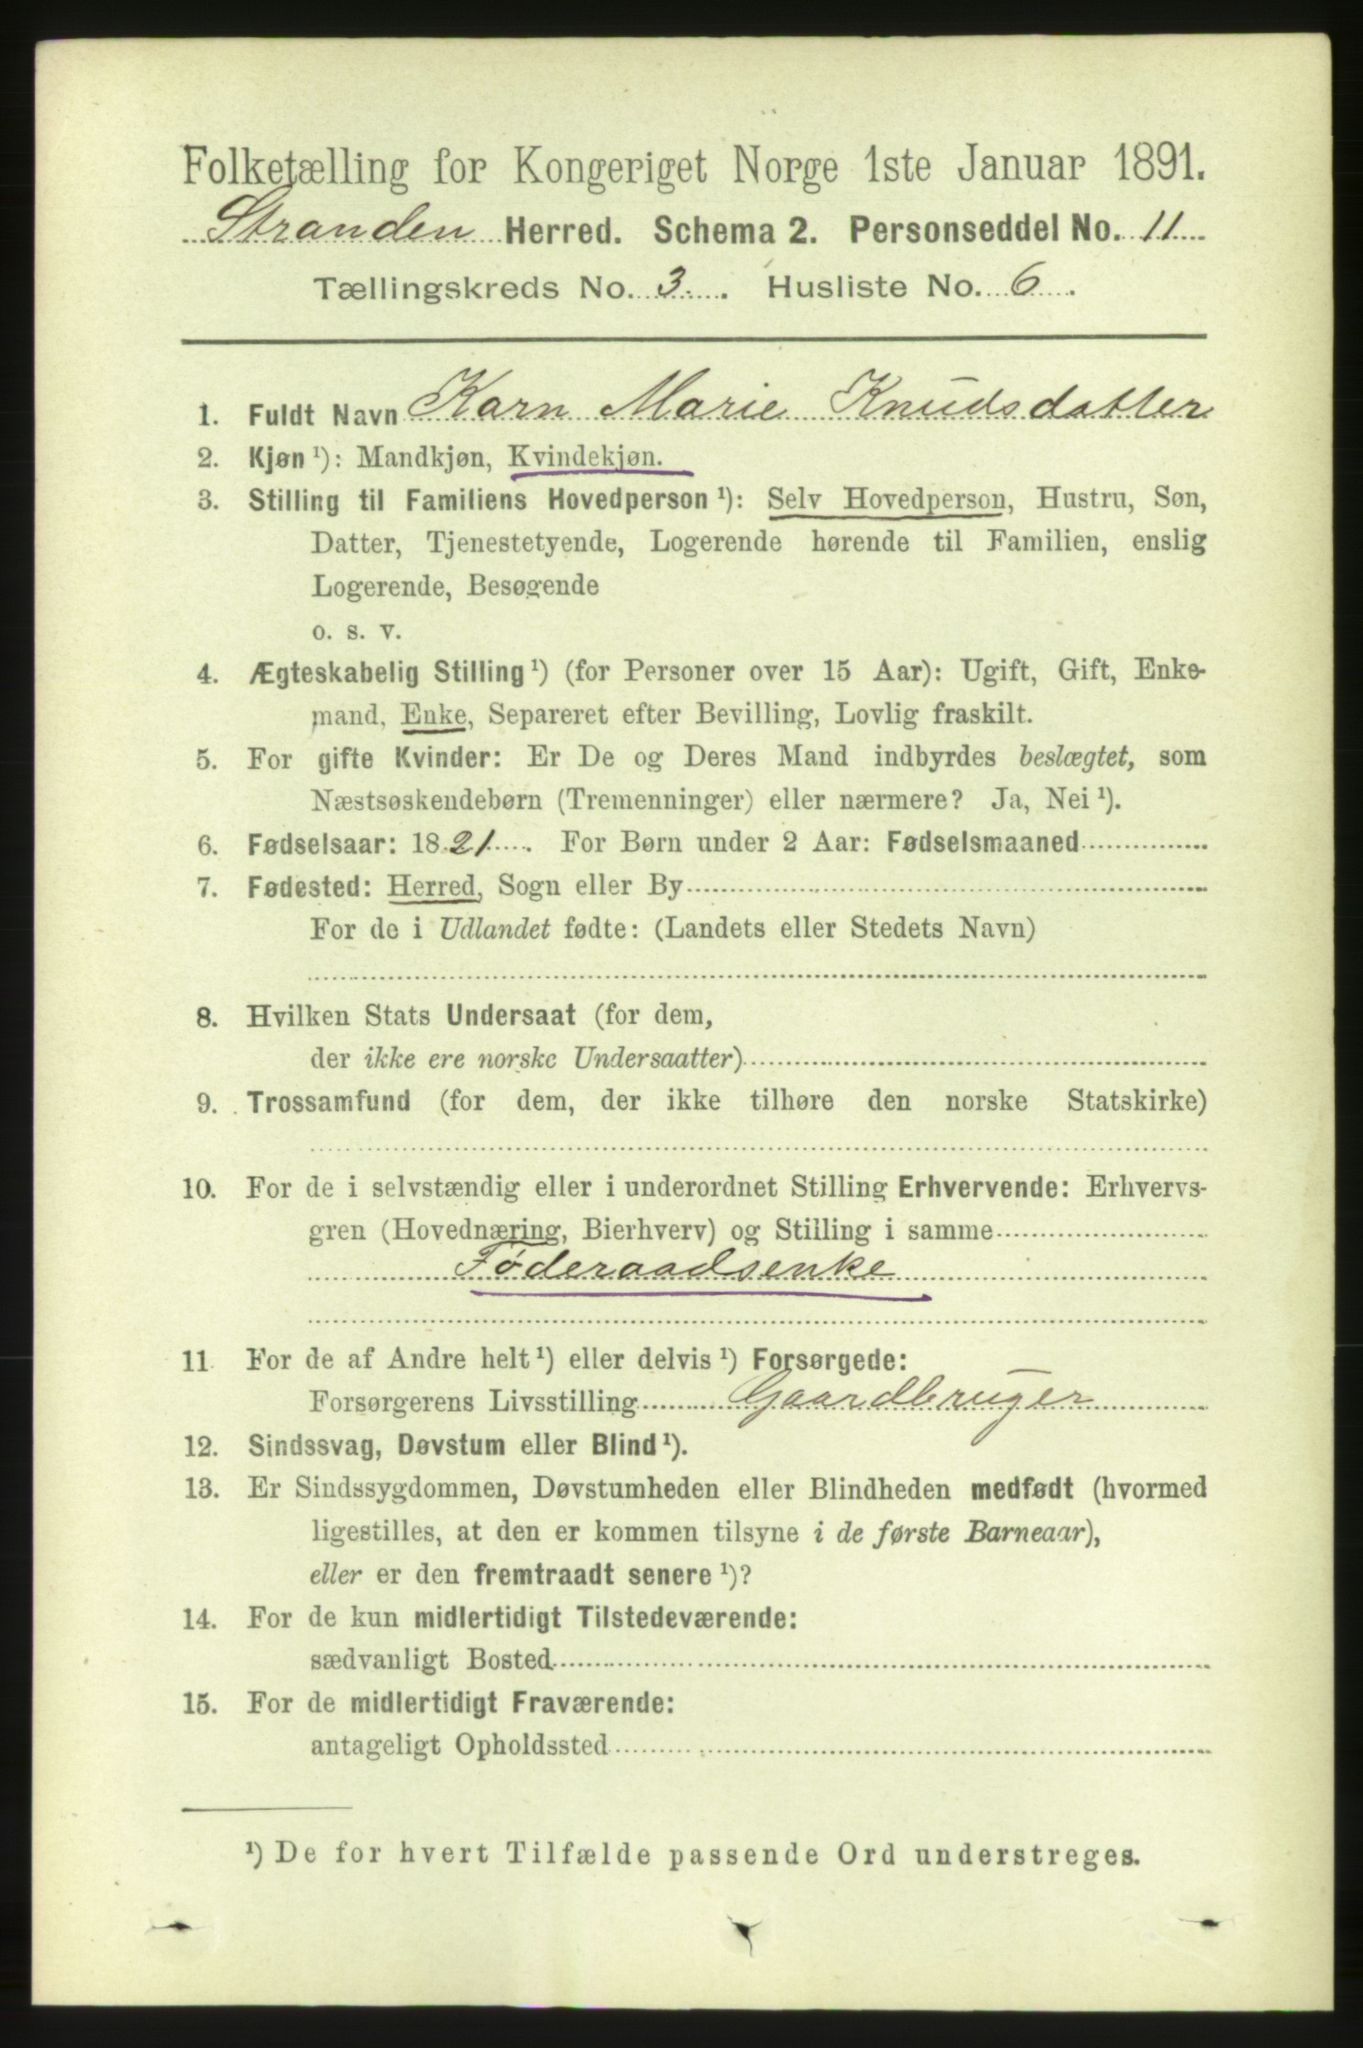 Folketælling for Kongeriget Norge 1ste Januar 1891.
Stranden Herred. Schema 2. Personseddel No. 11
Tællingskreds No. 3. Husliste No. 6.
1. Fuldt Navn Karn Marie Knudsdatter
2. Kjøn¹): Mandkjøn, Kvindekjøn.
3. Stilling til Familiens Hovedperson¹): Selv Hovedperson, Hustru, Søn,
Datter, Tjenestetyende, Logerende hørende til Familien, enslig
Logerende, Besøgende
o. s. v.
4. Ægteskabelig Stilling¹) (for Personer over 15 Aar): Ugift, Gift, Enke-
mand, Enke, Separeret efter Bevilling, Lovlig fraskilt.
5. For gifte Kvinder: Er De og Deres Mand indbyrdes beslægtet, som
Næstsøskendebørn (Tremenninger) eller nærmere? Ja, Nei¹).
6. Fødselsaar: 1821. For Børn under 2 Aar: Fødselsmaaned
7. Fødested: Herred, Sogn eller By
For de i Udlandet fødte: (Landets eller Stedets Navn)
8. Hvilken Stats Undersaat (for dem,
der ikke ere norske Undersaatter)
9. Trossamfund (for dem, der ikke tilhøre den norske Statskirke)
10. For de i selvstændig eller i underordnet Stilling Erhvervende: Erhvervs-
gren (Hovednæring, Bierhverv) og Stilling i samme
Føderaadsenke
11 For de af Andre helt¹) eller delvis¹) Forsørgede:
Forsørgerens Livsstilling Gaardbruger
12. Sindssvag, Døvstum eller Blind¹).
13. Er Sindssygdommen, Døvstumheden eller Blindheden medfødt (hvormed
ligestilles, at den er kommen tilsyne i de første Barneaar),
eller er den fremtraadt senere¹)?
14. For de kun midlertidigt Tilstedeværende:
sædvanligt Bosted
15. For de midlertidigt Fraværende:
antageligt Opholdssted
¹) De for hvert Tilfælde passende Ord understreges.